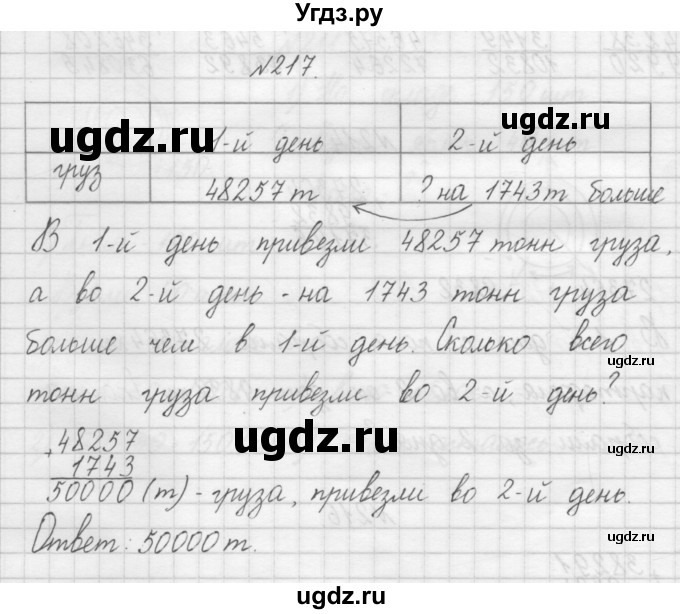 Угдз.ру
№217.
1-й день 2-й день
груз 48257т ? на 1743т больше
В 1-й день привезли 48257 тонн груза,
а во 2-й день - на 1743 тонн груза
больше чем в 1-й день. Сколько всего
тонн груза привезли во 2-й день?
+ 48257
1743
50000 (т) - груза, привезли во 2-й день.
Ответ: 50000 т.
ugdz.ru
ugdz.ru
ugdz.ru
ugdz.ru
ugdz.ru
ugdz.ru
ugdz.ru